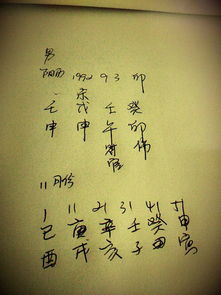 男
阳历 1992 9 3 卯
壬 戊 壬 癸
申 申 午 卯
1 11 21 31 41 51
己 庚 辛 壬 癸 甲
酉 戌 亥 子 丑 寅